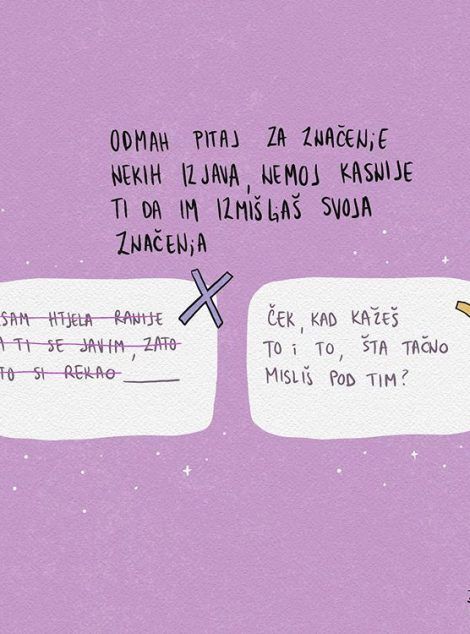 ODMAH PITAJ ZA ZNAČENjE
NEKIH IZJAVA, NEMOJ KASNIJE
TI DA IM IZMIŠLjAŠ SVOJA
ZNAČENjA
SAM HTJELA RANIJE
TI SE JAVIM, ZATO
SI REKAO ______
ČEK, KAD KAŽEŠ
TO I TO, ŠTA TAČNO
MISLIŠ POD TIM?